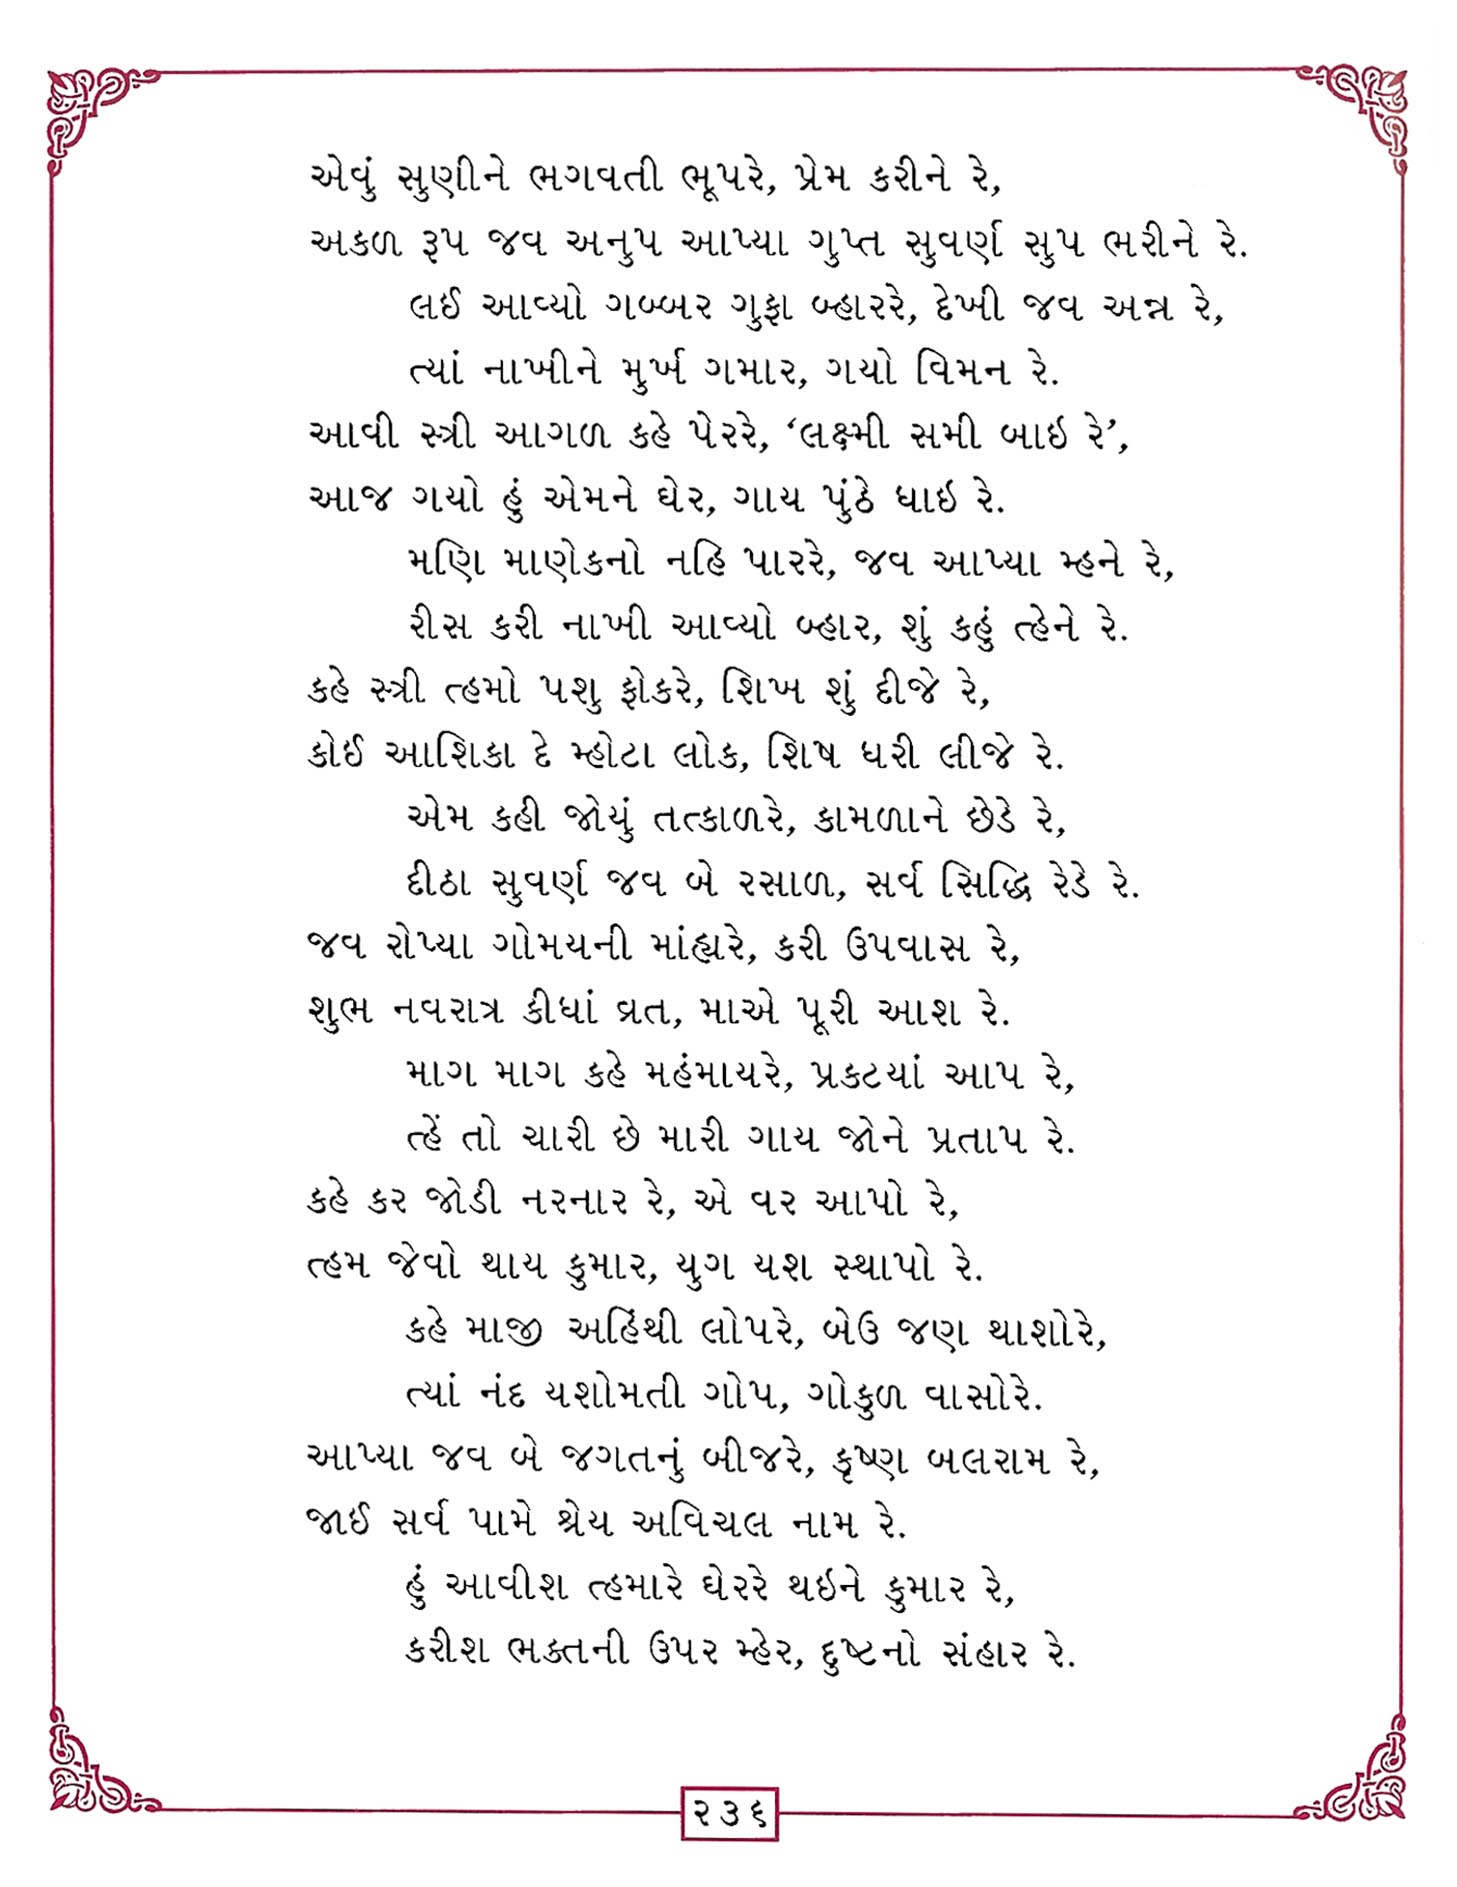 એવું સુણીને ભગવતી ભૂપરે, પ્રેમ કરીને રે,
અકળ રૂપ જવ અનુપ આપ્યા ગુપ્ત સુવર્ણ સુપ ભરીને રે.
લઈ આવ્યો ગબ્બર ગુફા બ્હારરે, દેખી જવ અન્ન રે,
ત્યાં નાખીને મુર્ખ ગમાર, ગયો વિમન રે.
આવી સ્ત્રી આગળ કહે પેરરે, ‘લક્ષ્મી સમી બાઇ રે’,
આજ ગયો હું એમને ઘેર, ગાય પુંઠે ધાઇ રે.
મણિ માણેકનો નહિ પારરે, જવ આપ્યા મ્હને રે,
રીસ કરી નાખી આવ્યો બ્હાર, શું કહું ત્હેને રે.
કહે સ્ત્રી ત્હમો પશુ ફોકરે, શિખ શું દીજે રે,
કોઈ આશિકા દે મ્હોટા લોક, શિષ ધરી લીજે રે.
એમ કહી જોયું તત્કાળરે, કામળાને છેડે રે,
દીઠા સુવર્ણ જવ બે રસાળ, સર્વ સિદ્ધિ રેડે રે.
જવ રોપ્યા ગોમયની માંહ્યરે, કરી ઉપવાસ રે,
શુભ નવરાત્ર કીધાં વ્રત, માએ પૂરી આશ રે.
માગ માગ કહે મહંમાયરે, પ્રકટયાં આપ રે,
ત્હેં તો ચારી છે મારી ગાય જોને પ્રતાપ રે.
કહે કર જોડી નરનાર રે, એ વર આપો રે,
ત્હમ જેવો થાય કુમાર, યુગ યશ સ્થાપો રે.
કહે માજી અહિંથી લોપરે, બેઉ જણ થાશોરે,
ત્યાં નંદ યશોમતી ગોપ, ગોકુળ વાસોરે.
આપ્યા જવ બે જગતનું બીજરે, કૃષ્ણ બલરામ રે,
જાઈ સર્વ પામે શ્રેય અવિચલ નામ રે.
હું આવીશ ત્હમારે ઘેરરે થઇને કુમાર રે,
કરીશ ભક્તની ઉપર મ્હેર, દુષ્ટનો સંહાર રે.
૨૩૬